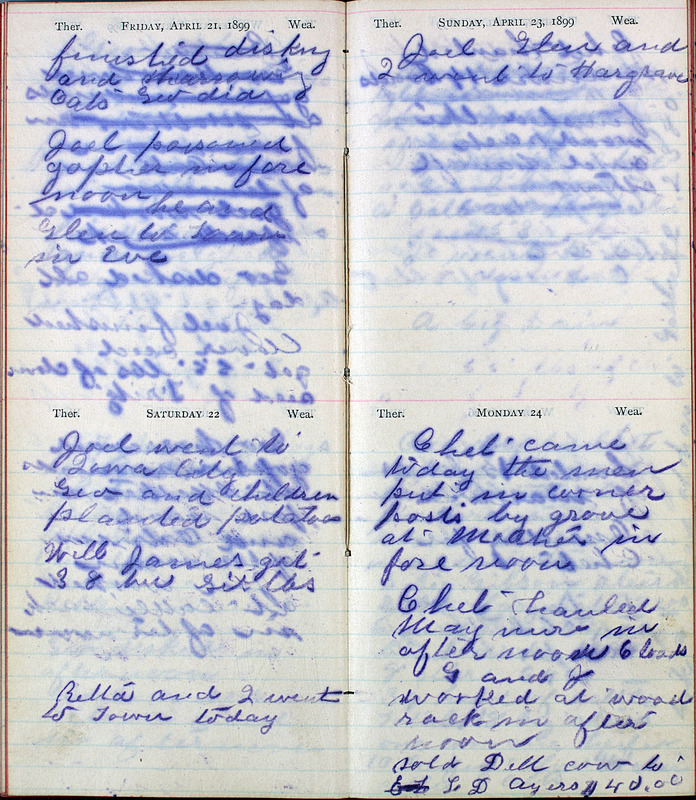 Ther. FRIDAY, APRIL 21, 1899 Wea.
finished disking
and
Oats Geo did
Joel poisoned
gopher in fore
noon he and
Glen to town
in Eve
Ther. SATURDAY 22 Wea.
Joel went to
Iowa City
Geo and children
planted potatoes
Will James got
3 8 bu six lbs
Retta and I went
to Town today
Ther. SUNDAY, APRIL 23, 1899 Wea.
Joel Glen and
I went to Hargrave
Ther. MONDAY 24 Wea.
Chet came
today the men
put in corner
posts by grove
at Mother in
fore noon
Chet hauled
in
after noon 6 loads
G and J
worked at wood
rack in after
noon
sold Dell cow to
L D Ayers $40.00